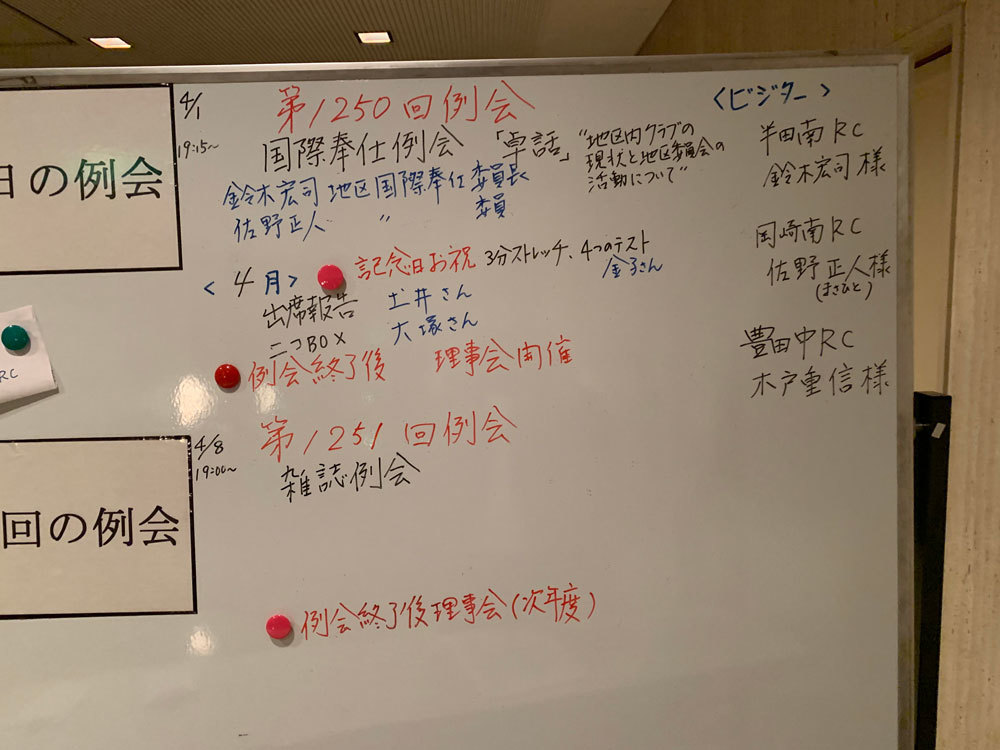 日の例会
4/1
19:15～
第1250回例会
国際奉仕例会 「卓話」
"地区内クラブの
現状と地区委員会の
活動について"
鈴木宏司 地区国際奉仕 委員長
佐野正人 〃 委員
<4月>
記念日お祝 3分ストレッチ、4つのテスト
金子さん
出席報告 土井さん
ニコBOX 大塚さん
例会終了後 理事会開催
<ビジター>
半田南RC
鈴木宏司様
岡崎南RC
佐野正人様
(まさひと)
豊田中RC
木戸重信様
RC
回の例会
4/8
19:00～
第1251回例会
雑誌例会
例会終了後理事会(次年度)